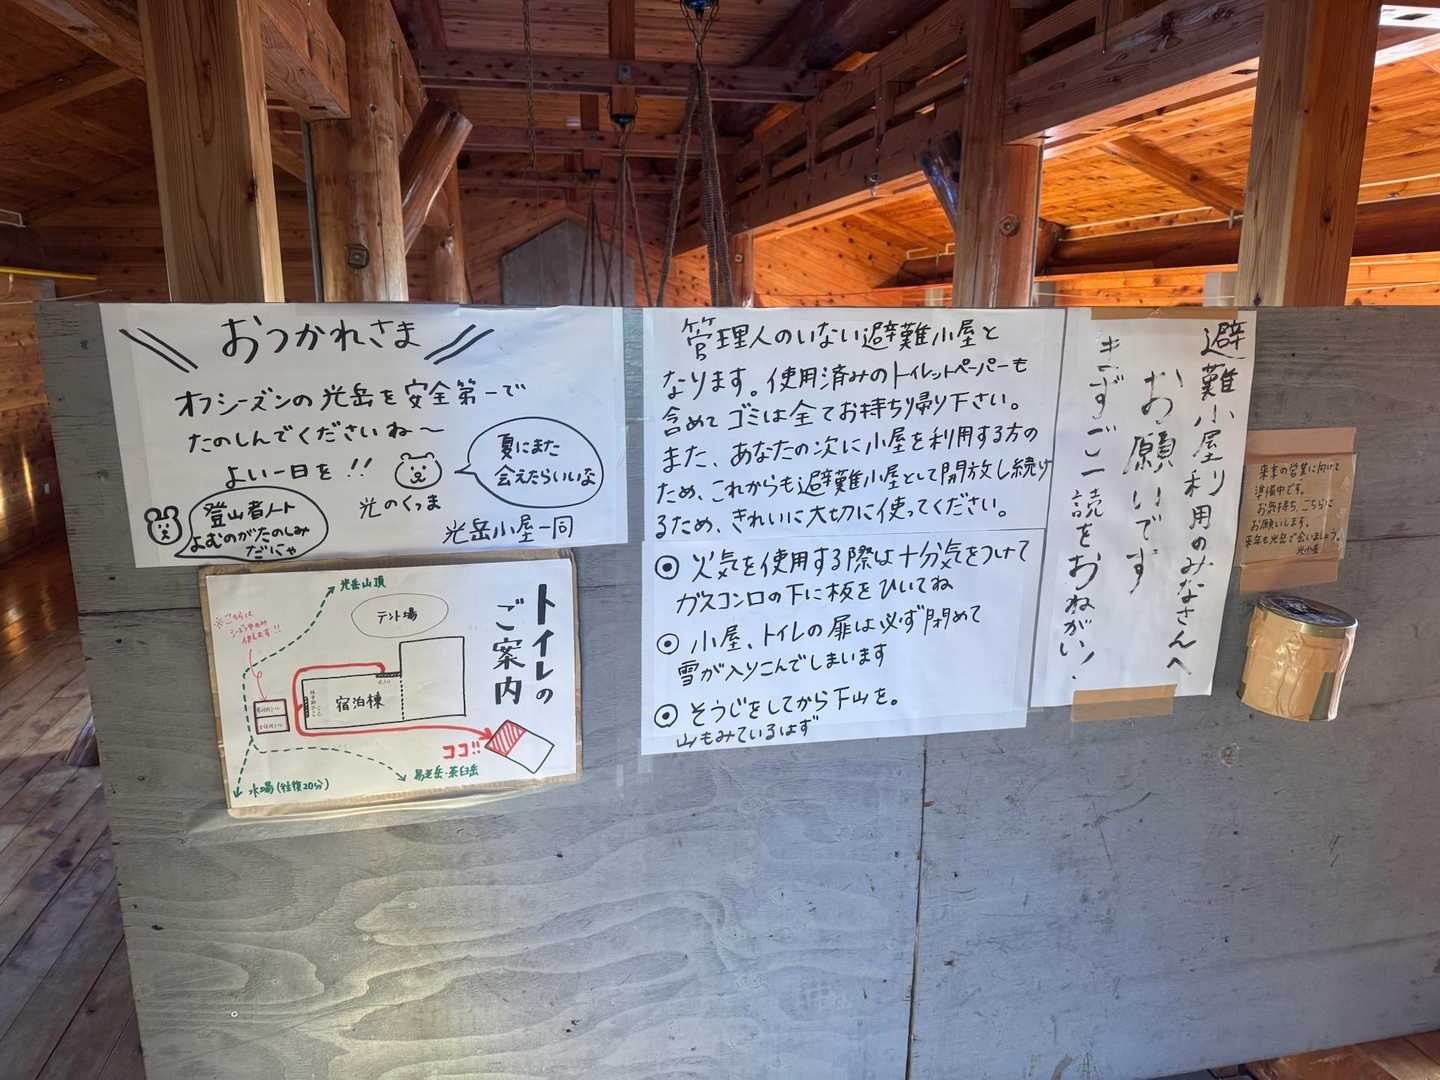 おつかれさま
オフシーズンの光岳を安全第一で
たのしんでくださいね〜
よい一日を!!
夏にまた
会えたらいいな
光のくっま
登山者ノート
よむのがたのしみ
だにゃ
光岳小屋一同
トイレの
ご案内
光岳山頂
テント場
※こちらは
宿泊棟
ココ!!
易老岳・茶臼岳
水場(往復20分)
管理人のいない避難小屋と
なります。使用済みのトイレットペーパーも
含めてゴミは全てお持ち帰り下さい。
また、あなたの次に小屋を利用する方の
ため、これからも避難小屋として開放し続け
るため、きれいに大切に使ってください。
◎ 火気を使用する際は十分気をつけて
ガスコンロの下に板をひいてね
◎ 小屋、トイレの扉は必ず閉めて
雪が入りこんでしまいます
◎ そうじをしてから下山を。
山もみているはず
避難小屋利用のみなさんへ
お願いです
まずご一読をおねがい!
来季の営業に向けて
準備中です。
お気持ち、こちらに
お願いします。
来年も光岳で会いましょう。
光小屋